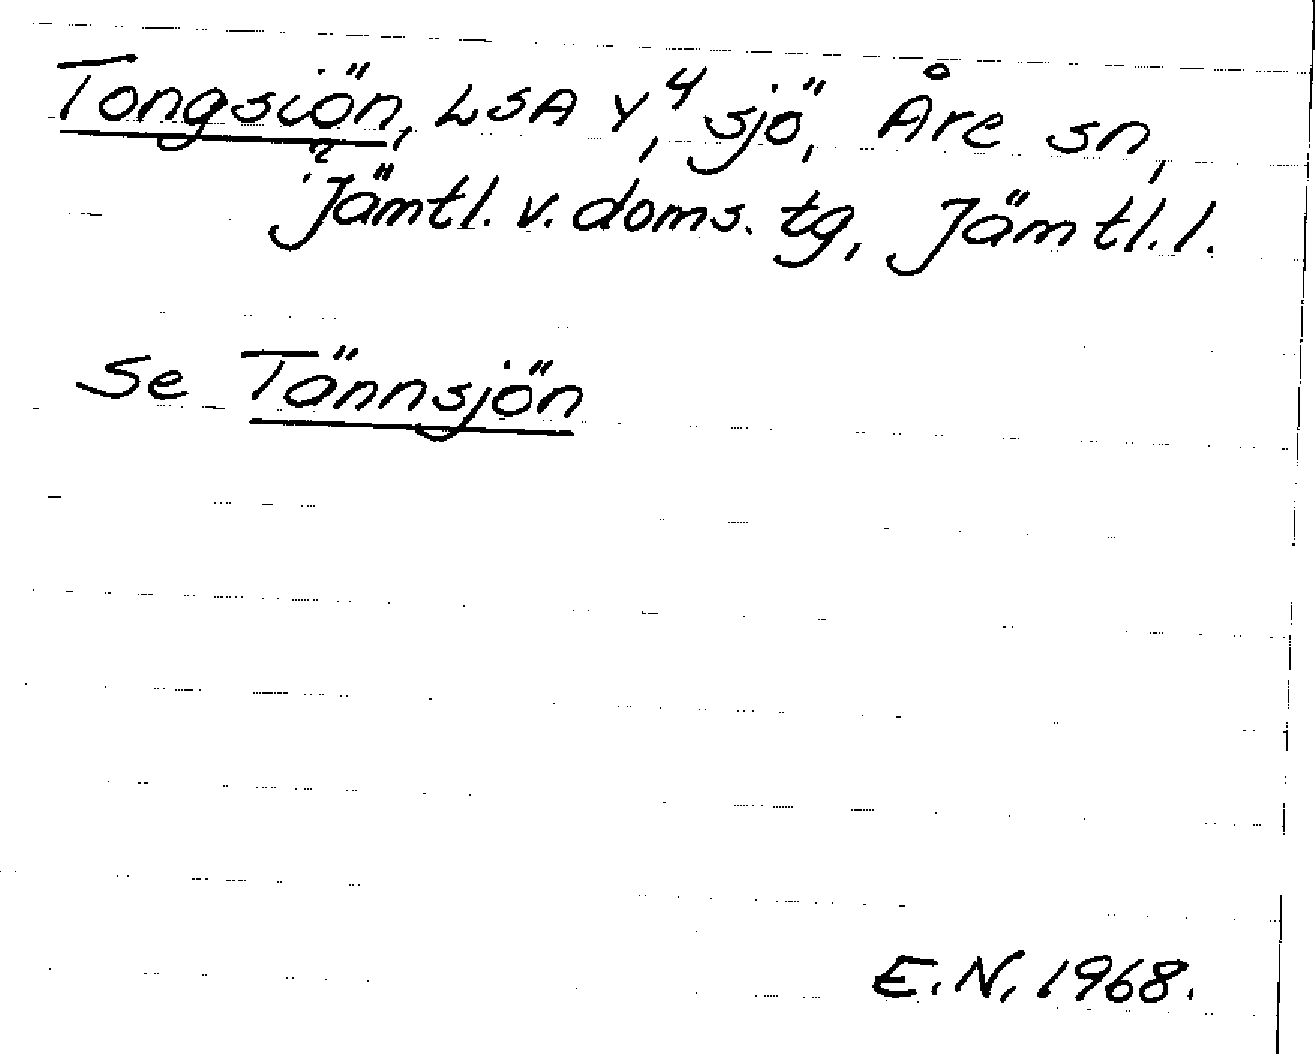 Tongsiön, LSA Y,⁴ sjö, Åre sn,
Jämtl. v. doms. tg, Jämtl. l.
Se Tännsjön
E.N. 1968.